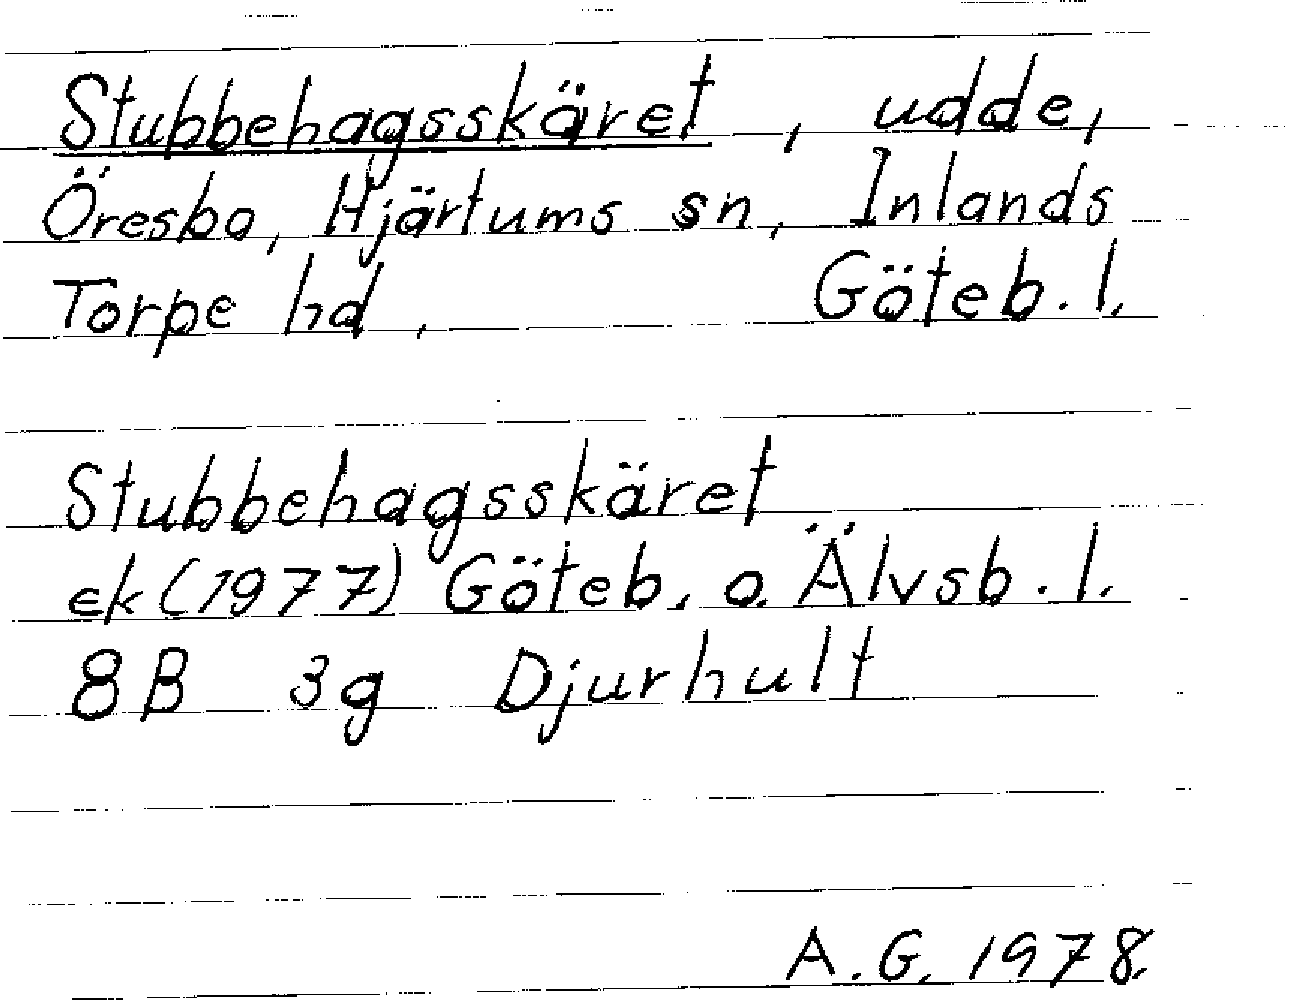 Stubbehagsskäret, udde,
Öresbo, Hjärtums sn, Inlands
Torpe hd, Göteb. l.
Stubbehagsskäret
ek (1977) Göteb. o. Älvsb. l.
8B 3g Djurhult
A.G. 1978.